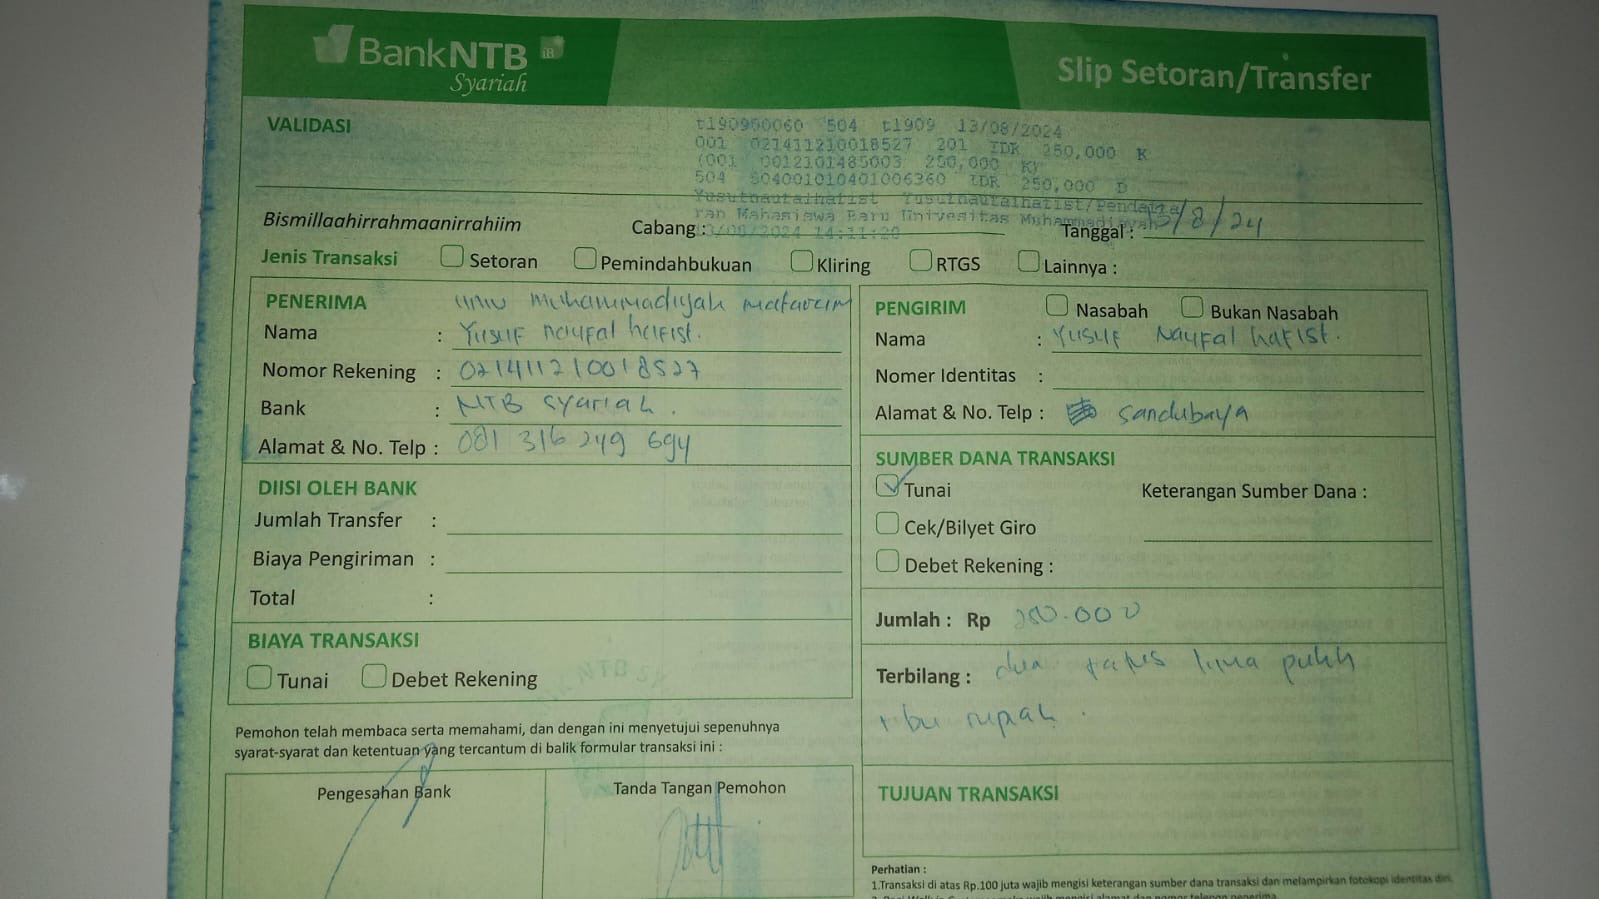 BankNTB iB
Syariah
Slip Setoran/Transfer
VALIDASI
t190950060 504 t1909 13/08/2024
001 021411210018527 201 IDR 250,000 K
(001 0012101485003 250,000 K)
504 504001010401006360 IDR 250,000 D
Yusufnaufalhafist Yusufnaufalhafist/Pendafta
ran Mahasiswa Baru Univesitas Muhammadiyah
13/08/2024 14:11:20
Bismillaahirrahmaanirrahiim
Cabang :
Tanggal : 13/8/24
Jenis Transaksi Setoran Pemindahbukuan Kliring RTGS Lainnya :
PENERIMA Muhammadiyah mataram
Nama : Yusuf naufal hafist.
Nomor Rekening : 021411210018527
Bank : NTB Syariah.
Alamat & No. Telp : 081 316 249 694
DIISI OLEH BANK
Jumlah Transfer :
Biaya Pengiriman :
Total :
BIAYA TRANSAKSI
Tunai Debet Rekening
Pemohon telah membaca serta memahami, dan dengan ini menyetujui sepenuhnya
syarat-syarat dan ketentuan yang tercantum di balik formular transaksi ini :
Pengesahan Bank
Tanda Tangan Pemohon
PENGIRIM Nasabah Bukan Nasabah
Nama : Yusuf Naufal hafist.
Nomer Identitas :
Alamat & No. Telp : Sandubaya
SUMBER DANA TRANSAKSI
Tunai Keterangan Sumber Dana :
Cek/Bilyet Giro
Debet Rekening :
Jumlah : Rp 250.000
Terbilang : dua ratus lima puluh
ribu rupiah.
TUJUAN TRANSAKSI
Perhatian :
1.Transaksi di atas Rp.100 juta wajib mengisi keterangan sumber dana transaksi dan melampirkan fotokopi identitas diri.